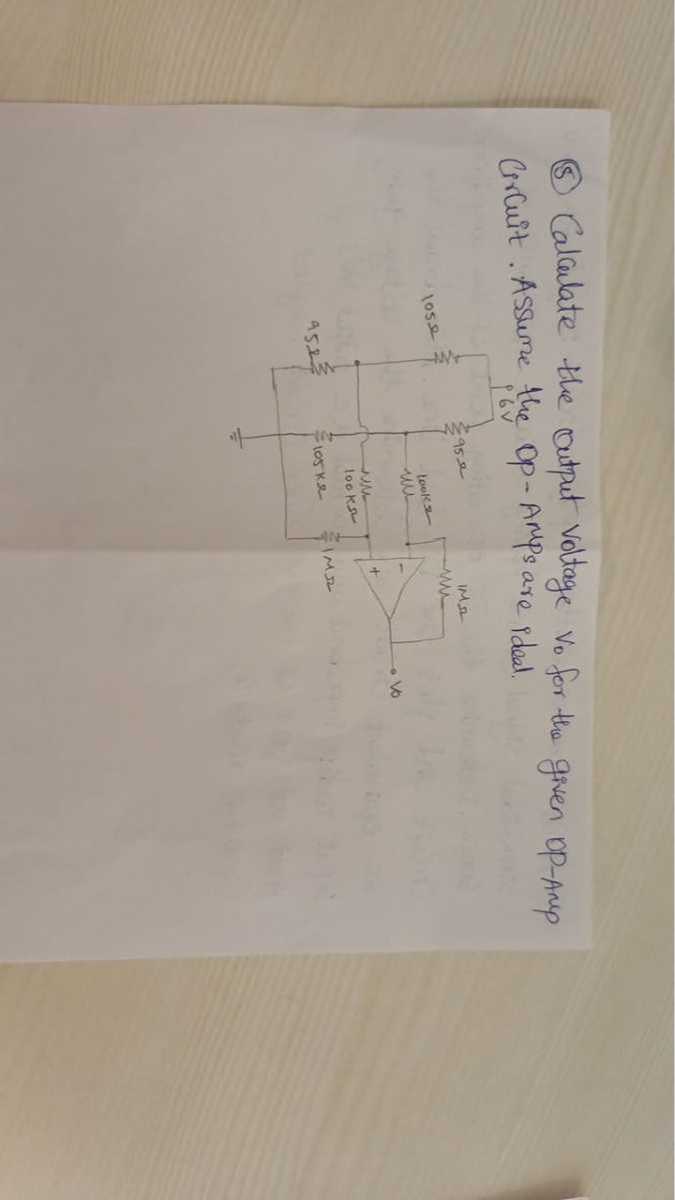 ⑤ Calculate the output voltage Vo for the given OP-Amp
Circuit. Assume the Op-Amps are ideal.
6V
105Ω
95Ω
100KΩ
1MΩ
-
+
Vo
100KΩ
95Ω
105KΩ
1MΩ